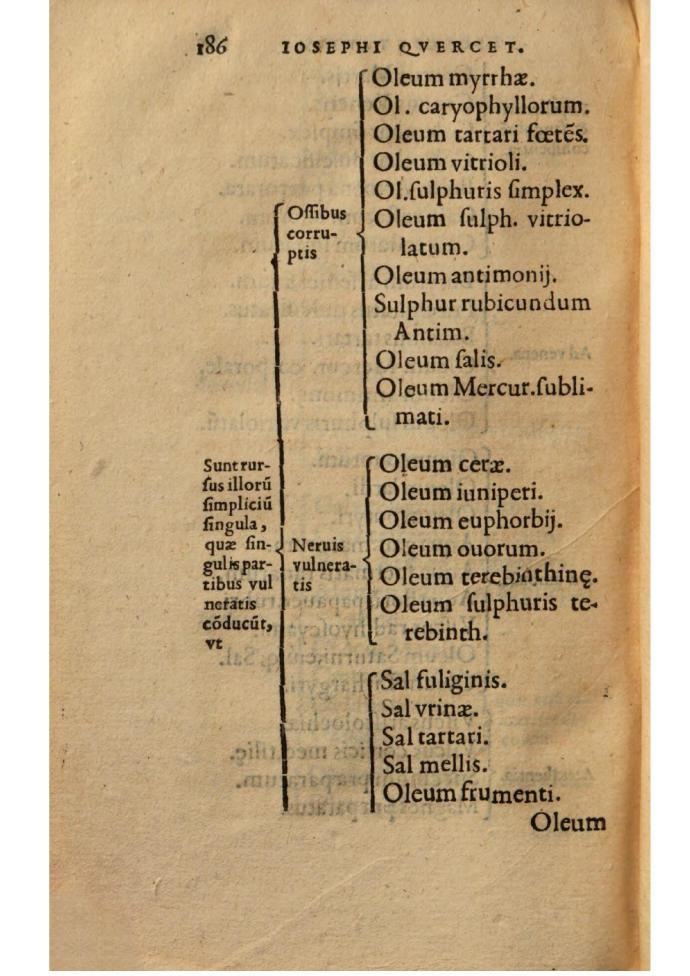 186 IOSEPHI QVERCET.
Sunt rur-
ſus illorũ
ſimpliciũ
ſingula,
quæ ſin-
gulis par-
tibus vul
neratis
cõducũt,
vt
Oſſibus
corru-
ptis
Oleum myrrhæ.
Ol. caryophyllorum.
Oleum tartari fœtẽs.
Oleum vitrioli.
Ol. ſulphuris ſimplex.
Oleum ſulph. vitrio-
latum.
Oleum antimonij.
Sulphur rubicundum
Antim.
Oleum ſalis.
Oleum Mercur. ſubli-
mati.
Neruis
vulnera-
tis
Oleum ceræ.
Oleum iuniperi.
Oleum euphorbij.
Oleum ouorum.
Oleum terebinthinę.
Oleum ſulphuris te-
rebinth.
Sal fuliginis.
Sal vrinæ.
Sal tartari.
Sal mellis.
Oleum frumenti.
Oleum